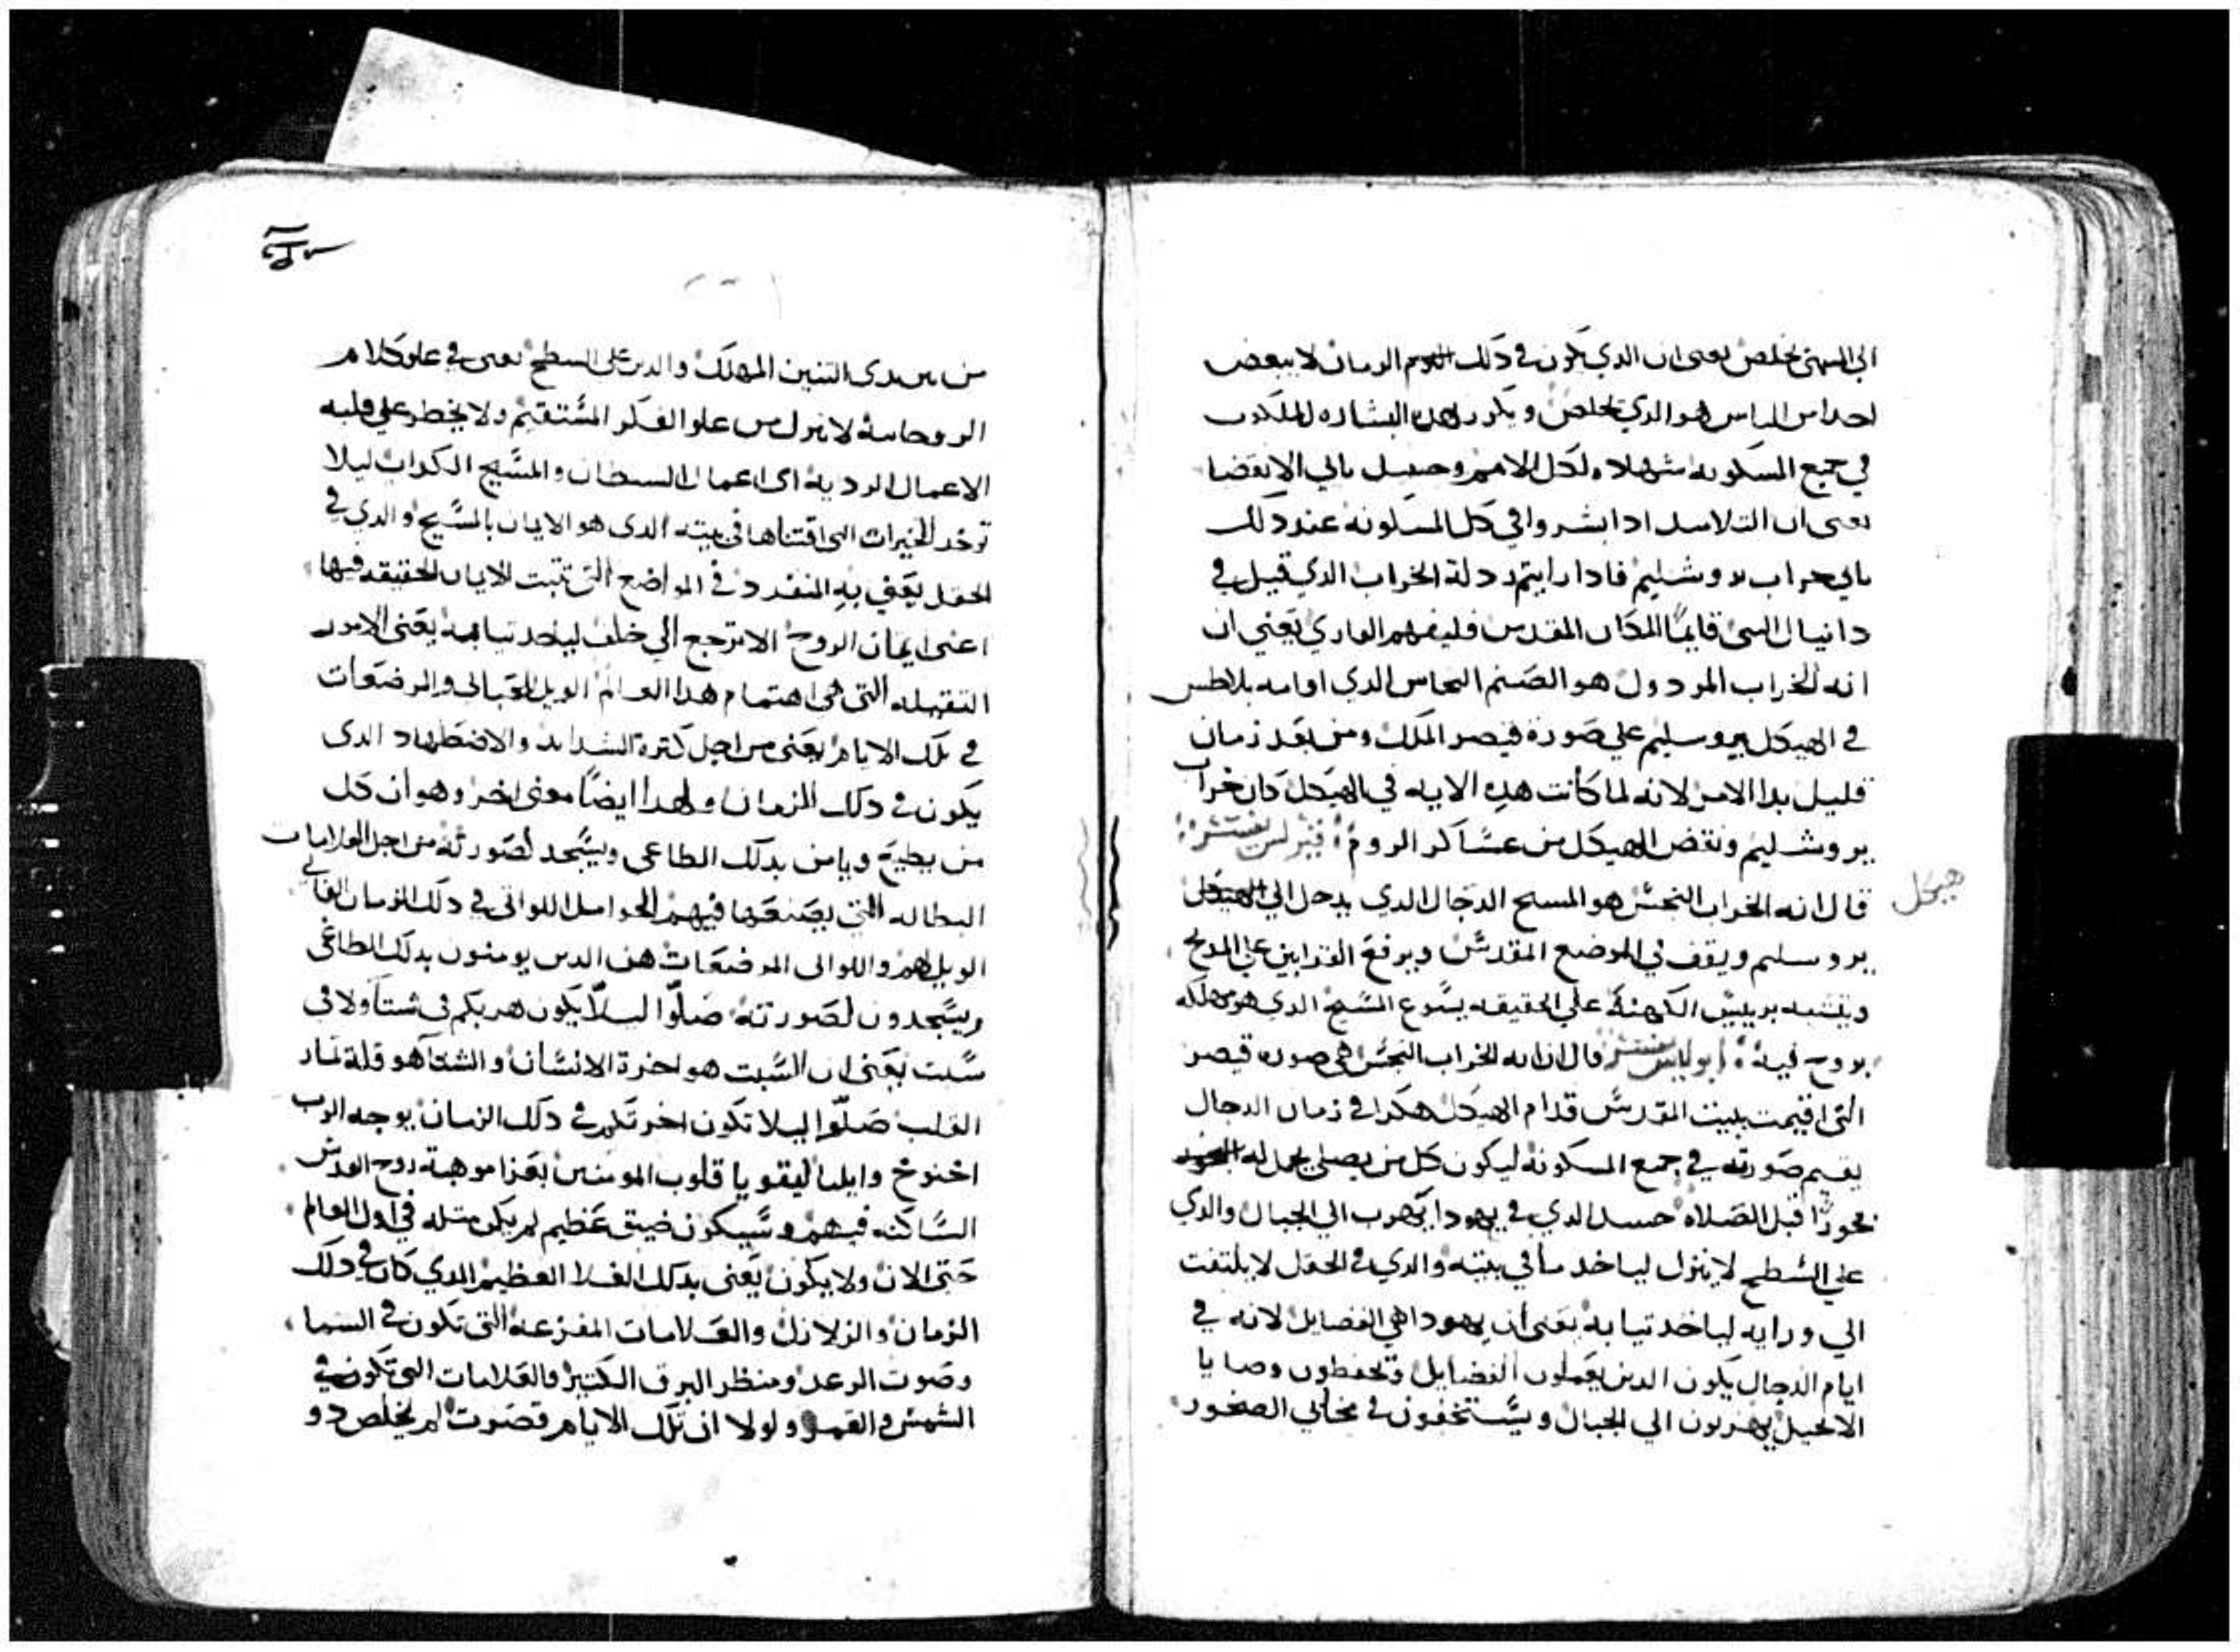 الي المنتهى يخلص يعنى ان الدي يكون في دلك اليوم الزمان لا يبغض
احدا من الناس هو الدي يخلص ويكرر بهده البشاره الملكوت
في جميع المسكونه شهاده لكل الامم وحينيد ياتي الانقضا
يعنى ان التلاميد ادا بشروا في كل المسكونه عند دلك
ياتي خراب يروشليم فادا رايتم ردلة الخراب الدي قيل في
دانيال النبى قايمًا المكان المقدس فليفهم القاري يعني ان
انه الخراب المردول هو الصنم النحاس الدي اقامه بلاطس
في الهيكل بيروسليم علي صورة قيصر الملك ومن بعد زمان
قليل بدا الامر لانه لما كانت هده الايه في الهيكل كان خراب
يروشليم ونقض الهيكل من عساكر الروم
قال انه الخراب النجس هو المسيح الدجال الدي يدخل الي الهيكل
هيكل
يروسليم ويقف في الموضع المقدس ويرفع القرابين علي المدبح
ويتشبه بريييس الكهنة علي الحقيقه يسوع المسيح الدي هو يهلكه
بروح فيه قال ان انه الخراب النجس هي صورة قيصر
التى اقيمت ببيت المقدس قدام الهيكل هكدا في زمان الدجال
يقيم صورته في جميع المسكونه ليكون كل من يصلي يحمل له
بخورًا قبل الصلاه حينيد الدي في يهودا يهرب الي الجبال والدي
علي السطح لا ينزل لياخد ما في بيته والدي في الحقل لا يلتفت
الي ورايه لياخد تيابه يعني ان يهودا هي الفضايل لانه في
ايام الدجال يكون الدين يعملون الفضايل ويحفظون وصايا
الانجيل يهربون الي الجبال ويستخفون في مخابي الصخور
من بين يدى التنين المهلك والدين على السطح يعنى في علو كلام
الروحانية لا ينزل من علو الفكر المستقيم ولا يخطر علي قلبه
الاعمال الرديه اى اعمال السيطان والمسيح الكداب ليلا
توخد الخيرات التى اقتناها في بيته الدى هو الايمان بالمسيح والدي في
الحقل يعني به المنفرد في المواضع التى تتبت الايمان الحقيقه فيها
اعنى ايمان الروح الا يرجع الي خلف لياخد تيابه يعنى الامور
التقيله التى هى اهتمام هدا العالم الويل للحبالى والمرضعات
في تلك الايام يعنى من اجل كترة الشدايد والاضطهاد الدى
يكون في دلك الزمان ولهدا ايضًا معنى اخر وهو ان كل
من يطيع ويامن بدلك الطاغى ويسجد لصورته من اجل العلامات
البطاله التى يصنعها فيهم الحوامل اللواتى في دلك الزمان
الويل لهم واللواتى المرضعات هن الدين يومنون بدلك الطاغى
ويسجدون لصورته صلّوا ليلّا يكون هربكم في شتا ولا في
سبت يعنى ان السبت هو اخرة الانسان والشتا هو قلة تمار
القلب صلّوا ليلا تكون اخرتكم في دلك الزمان يوجه الرب
اخنوخ وايليا ليقويا قلوب المومنين بعزا موهبة روح القدس
السّاكنه فيهم وسيكون ضيق عظيم لم يكن متله في اول العالم
حتى الان ولا يكون يعنى بدلك الغلا العظيم الدي كان في دلك
الزمان والزلازل والعلامات المفزعه التى تكون في السما
وصوت الرعد ومنظر البرق الكتير والعلامات التى تكون في
الشمس والقمر ولولا ان تلك الايام قصرت لم يخلص دو